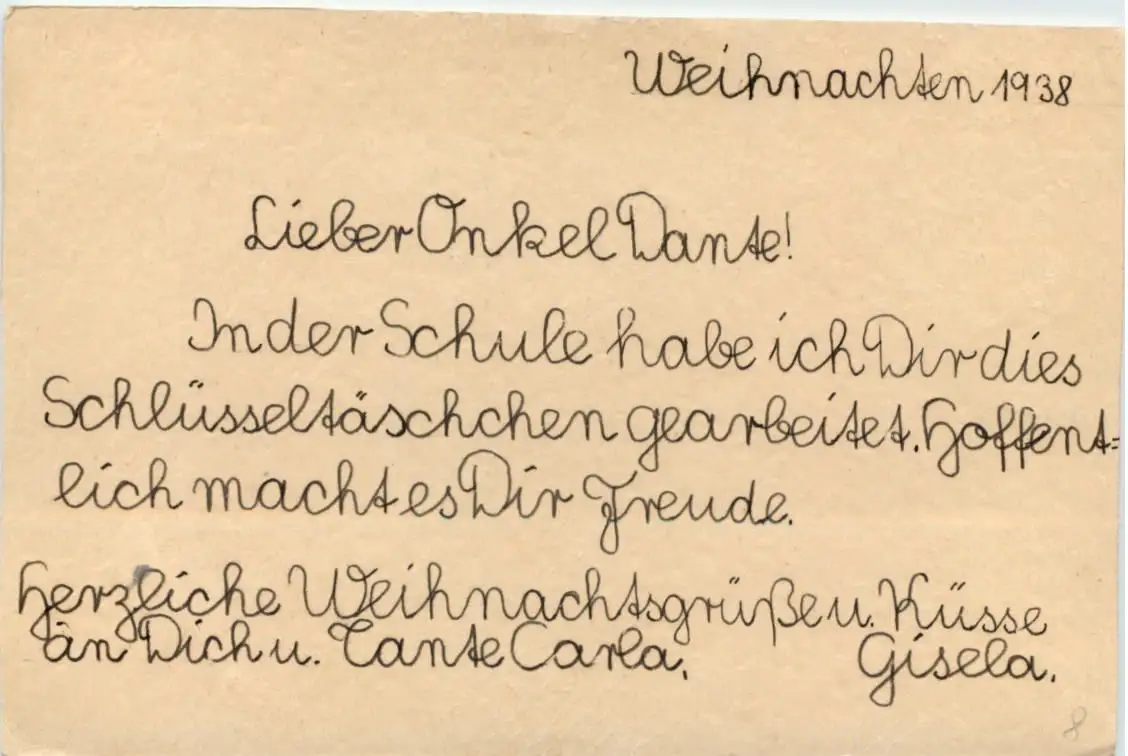 Weihnachten 1938
Lieber Onkel Dante!
In der Schule habe ich Dir dies
Schlüsseltäschchen gearbeitet. Hoffent=
lich macht es Dir Freude.
Herzliche Weihnachtsgrüße u. Küsse
an Dich u. Tante Carla.
Gisela.
8